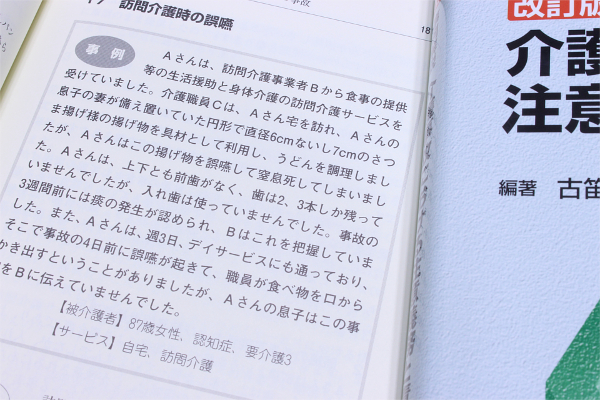 訪問介護時の誤嚥
181
事例
Aさんは、訪問介護事業者Bから食事の提供
等の生活援助と身体介護の訪問介護サービスを
受けていました。介護職員Cは、Aさん宅を訪れ、Aさんの
息子の妻が備え置いていた円形で直径6cmないし7cmのさつ
ま揚げ様の揚げ物を具材として利用し、うどんを調理しまし
たが、Aさんはこの揚げ物を誤嚥して窒息死してしまいまし
た。Aさんは、上下とも前歯がなく、歯は2、3本しか残って
いませんでしたが、入れ歯は使っていませんでした。事故の
3週間前には痰の発生が認められ、Bはこれを把握していま
した。また、Aさんは、週3日、デイサービスにも通っており、
そこで事故の4日前に誤嚥が起きて、職員が食べ物を口から
かき出すということがありましたが、Aさんの息子はこの事
をBに伝えていませんでした。
【被介護者】87歳女性、認知症、要介護3
【サービス】自宅、訪問介護
改訂版
介護
注意
編著 古笛